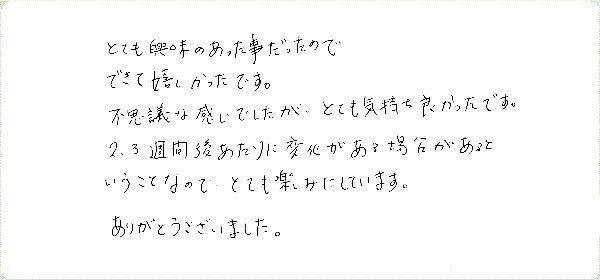 とても興味のあった事だったので
できて嬉しかったです。
不思議な感じでしたが、とても気持ち良かったです。
2、3週間後あたりに変化がある場合があると
いうことなので、とても楽しみにしています。
ありがとうございました。